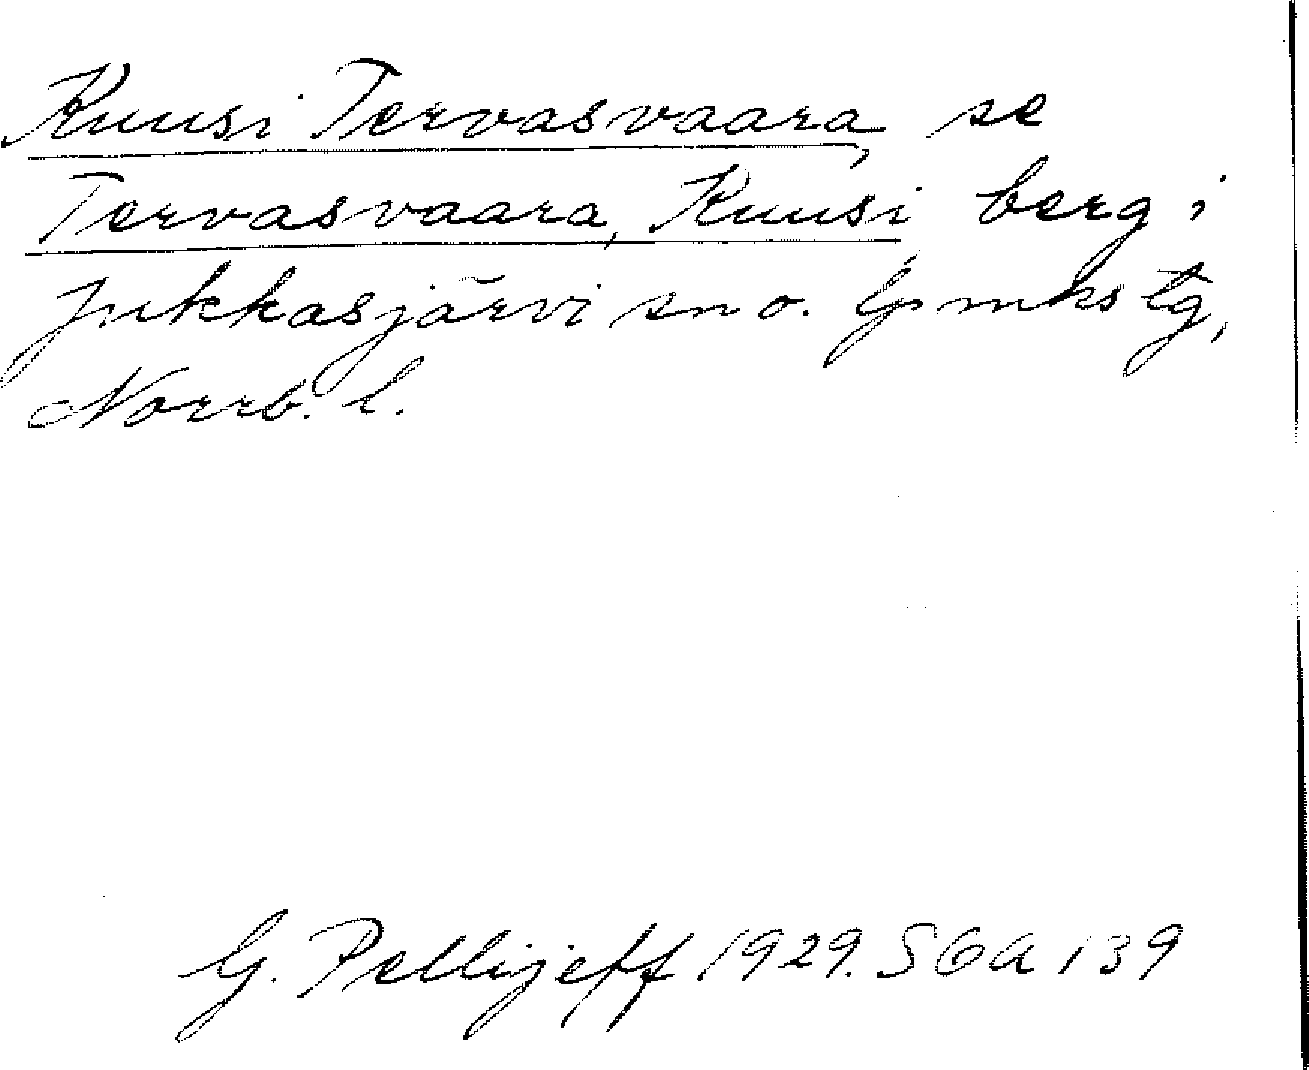 Kuusi Tervasvaara, se
Tervasvaara, Kuusi, berg i
Jukkasjärvi sn o. lpmhstg,
Norrb. l.
G. Pellijeff 1929. SOA 139